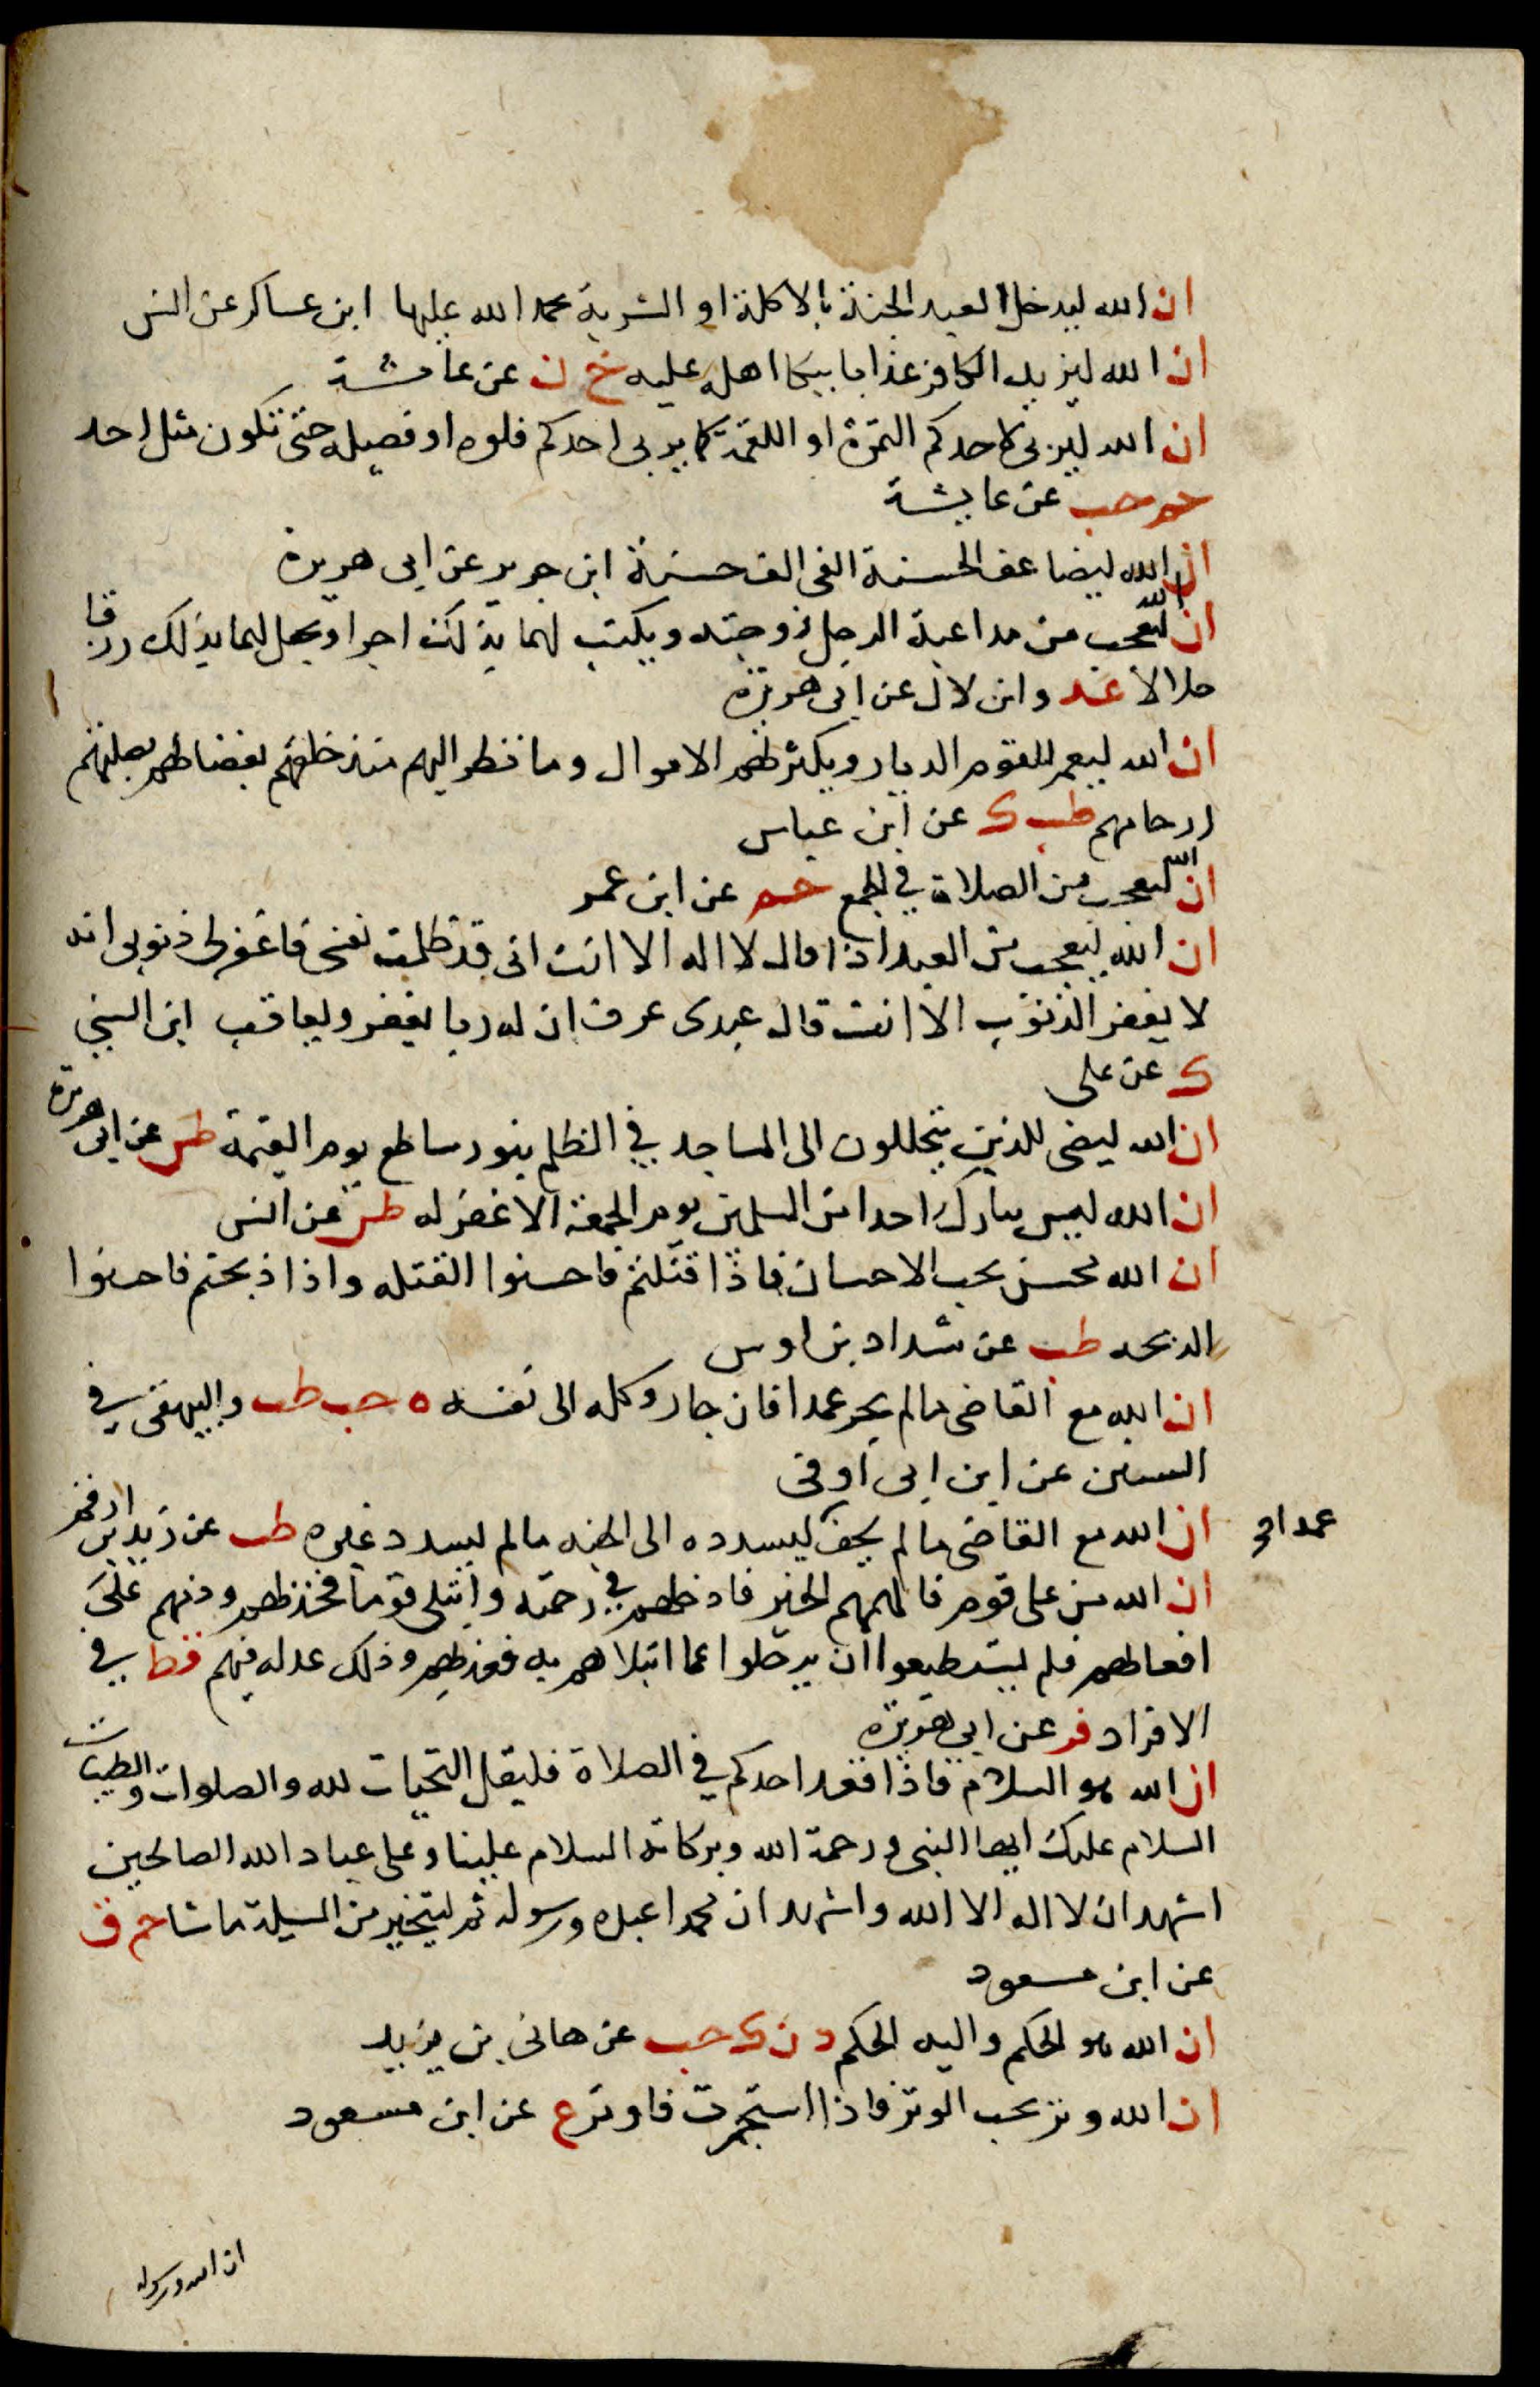 ان الله ليدخل العبد الجنة بالاكلة او الشربة يحمد الله عليها ابن عساكر عن انس
ان الله ليزيد الكافر عذابا ببكا اهله عليه خ ن عن عائشة
ان الله ليربي لاحدكم التمرة او اللقمة كما يربي احدكم فلوه او فصيله حتى تكون مثل احد
حم حب عن عايشة
ان الله ليضاعف الحسنة الفي الف حسنة ابن جرير عن ابي هريرة
ان الله ليعجب من مداعبة الرجل زوجته ويكتب لهما بذلك اجرا ويجعل لهما بذلك رزقا
حلالا عد وابن لال عن ابي هريرة
ان الله ليعمر للقوم الديار ويكثر لهم الاموال وما نظر اليهم منذ خلقهم بغضا لهم بصلتهم
ارحامهم طب ك عن ابن عباس
ان الله ليعجب من الصلاة في الجمع حم عن ابن عمر
ان الله ليعجب من العبد اذا قال لا اله الا انت اني قد ظلمت نفسي فاغفر لي ذنوبي انه
لا يغفر الذنوب الا انت قال عبدي عرف ان له ربا يغفر ويعاقب ابن السني
ك عن علي
ان الله ليضي للذين يتخللون الى المساجد في الظلم بنور ساطع يوم القيمة طس عن ابي هريرة
ان الله ليس بتارك احدا من المسلمين يوم الجمعة الا غفر له طس عن انس
ان الله محسن يحب الاحسان فاذا قتلتم فاحسنوا القتله واذا ذبحتم فاحسنوا
الذبحه طب عن شداد بن اوس
ان الله مع القاضي مالم يجر عمدا فان جار وكله الى نفسه ه حب طب والبيهقي في
السنن عن ابن ابي اوفى
ان الله مع القاضي ما لم يحف ليسدده الى الجنه مالم ليسدد غيره طب عن زيد بن ارقم
عمدا
ان الله من على قوم فالهمهم الخير فادخلهم في رحمته وابتلى قوما فخذلهم وذمهم على
افعالهم فلم يستطيعوا ان يرحلوا عما ابتلاهم به فعذبهم وذلك عدله فيهم قط في
الافراد فر عن ابي هريرة
ان الله هو السلام فاذا قعد احدكم في الصلاة فليقل التحيات لله والصلوات والطيبات
السلام عليك ايها النبي ورحمة الله وبركاته السلام علينا وعلى عباد الله الصالحين
اشهد ان لا اله الا الله واشهد ان محمدا عبده ورسوله ثم ليتخير من المسيلة ما شا حم ق
عن ابن مسعود
ان الله هو الحكم واليه الحكم د ن ك حب عن هاني بن يزيد
ان الله وتر يحب الوتر فاذا استجمرت فاوتر ع عن ابن مسعود
ان الله ورسوله